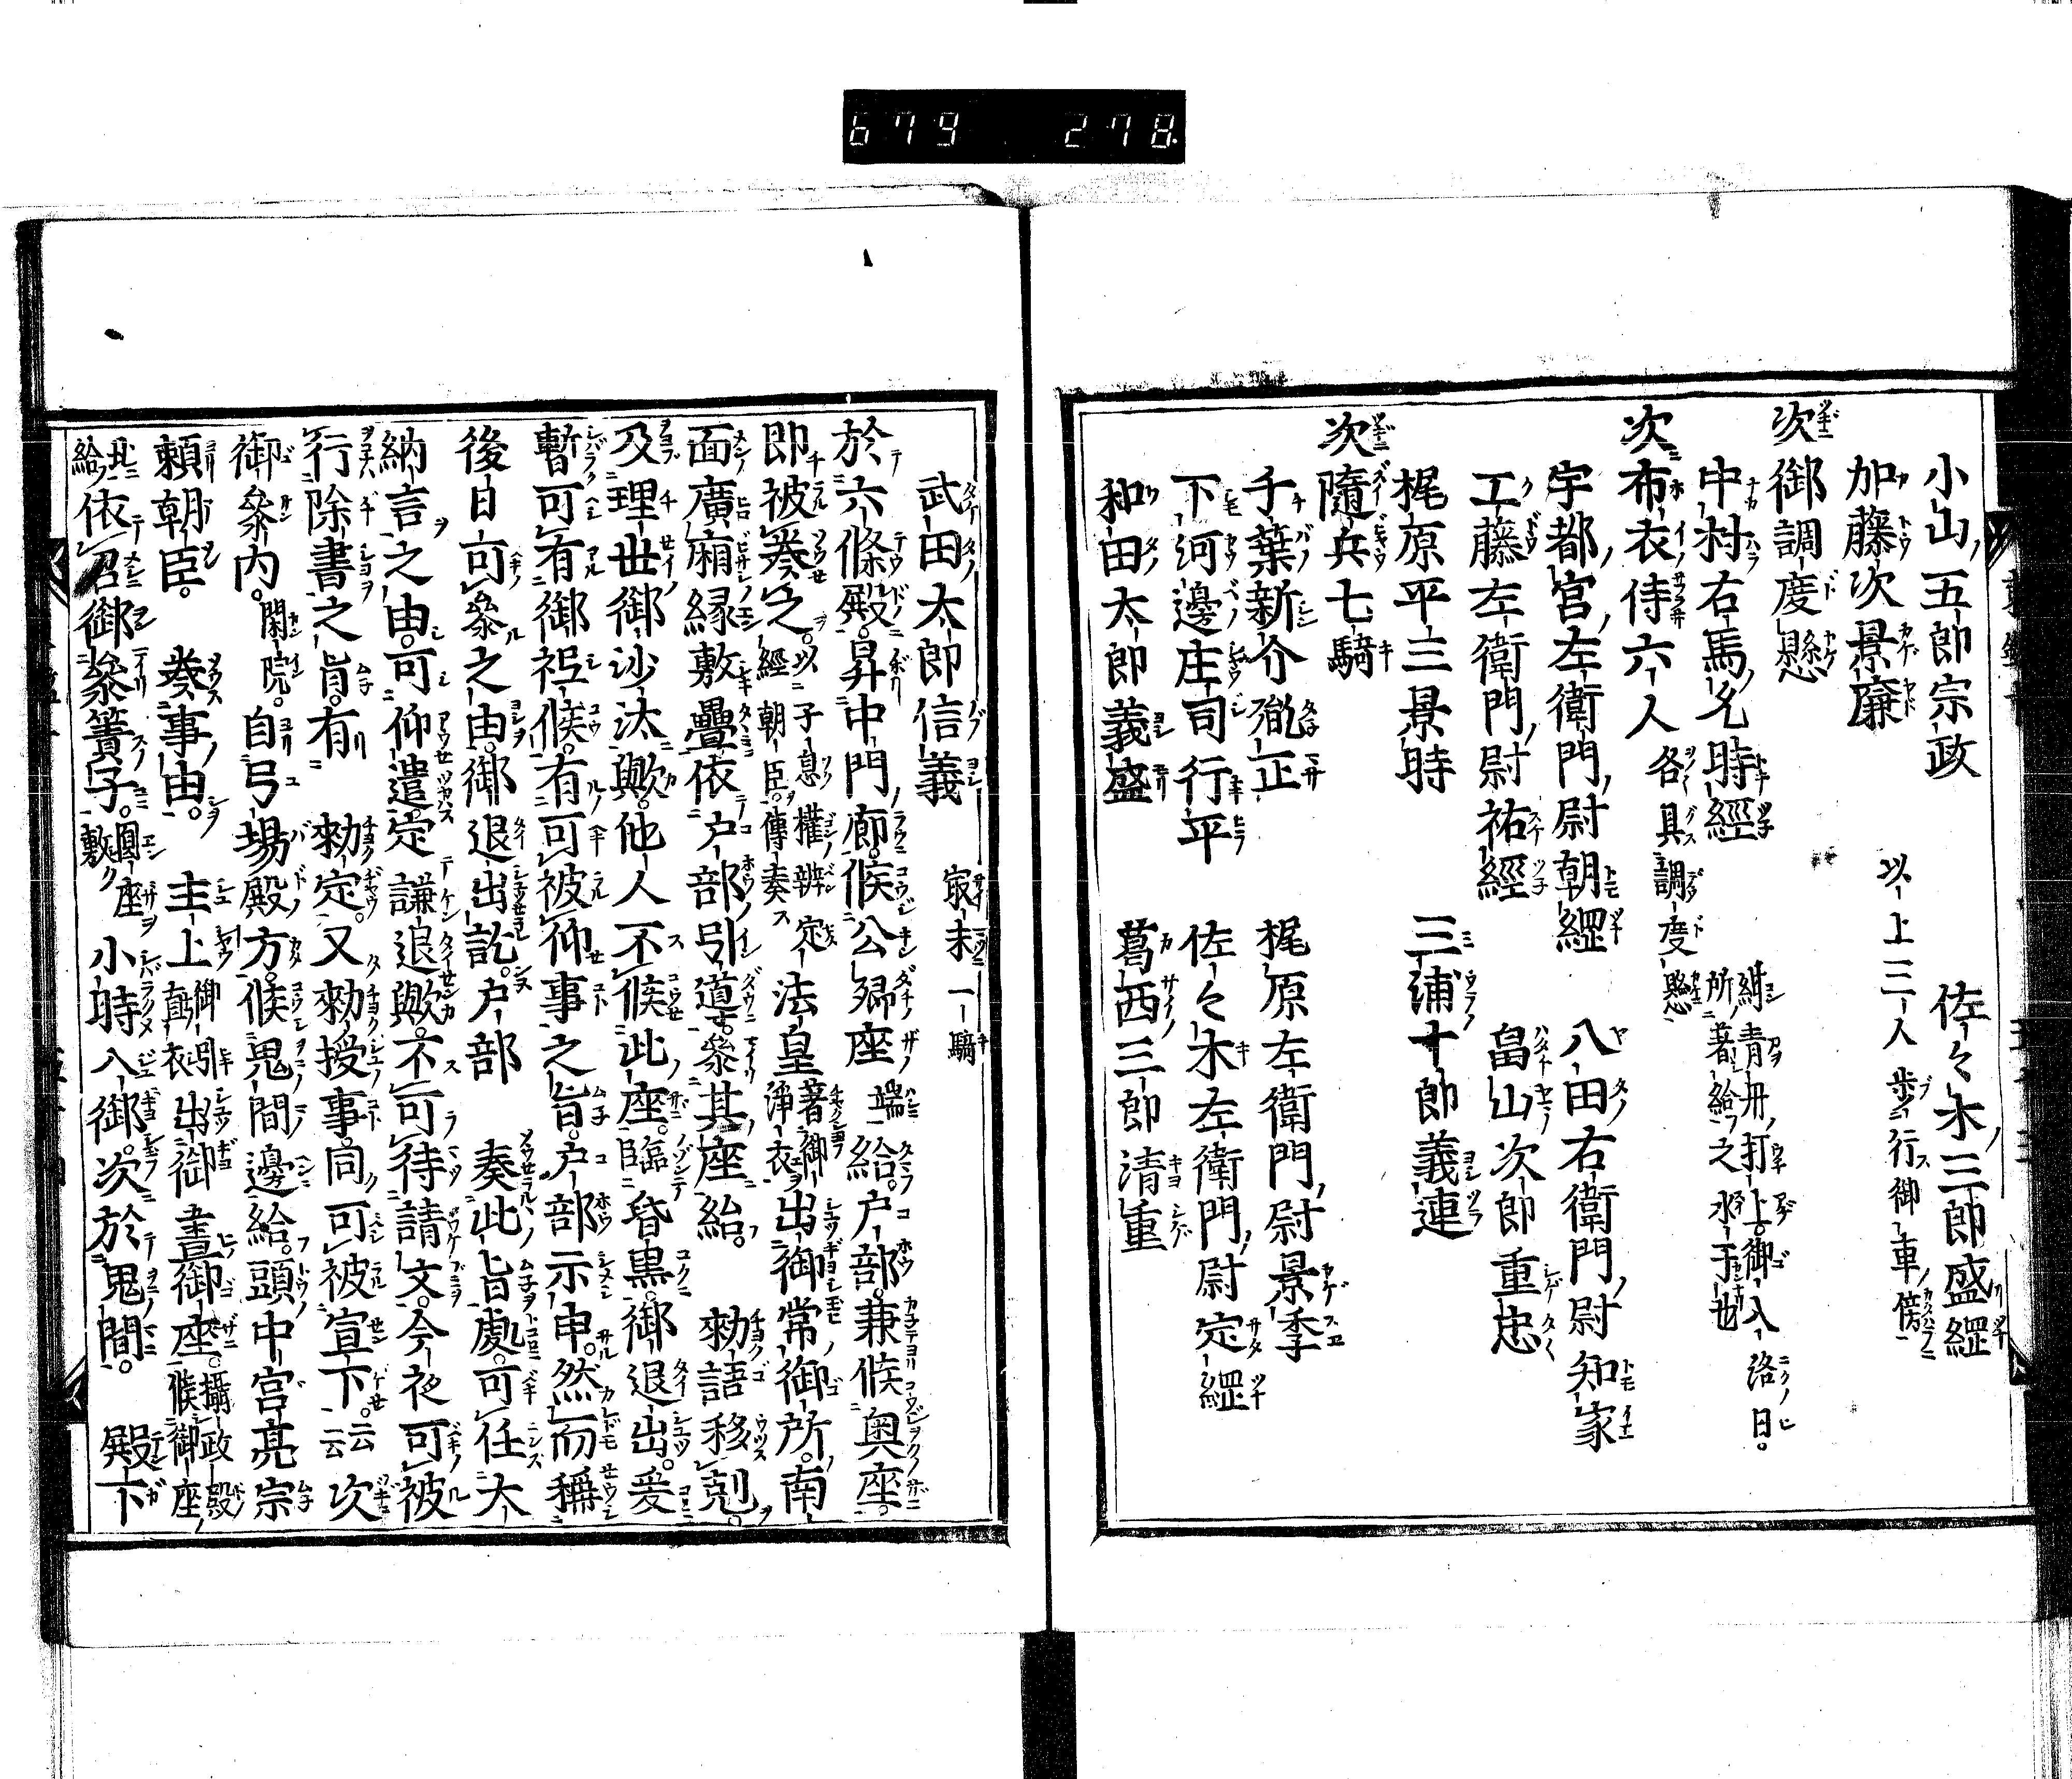 679 278
小山五郎宗政 佐々木三郎盛綱
加藤次景廉 以上三人歩行御車傍
次御調度懸
中村右馬允時經 紺青丹打上御入洛日。所著給之水干也
次布衣侍六人 各具調度懸
宇都宮左衛門尉朝綱 八田右衛門尉知家
工藤左衛門尉祐經 畠山次郎重忠
梶原平三景時 三浦十郎義連
次隨兵七騎
千葉新介胤正 梶原左衛門尉景季
下河邊庄司行平 佐々木左衛門尉定綱
和田太郎義盛 葛西三郎清重
武田太郎信義 最末一騎
於六條殿。昇中門廊。候公卿座端給。戸部。兼候奥座。
即被奏之。以子息權辨定經朝臣。傳奏 法皇著御淨衣出御常御所。南
面廣廂縁敷疊。依戸部引導。參其座給。 勅語移剋。
及理世御沙汰歟。他人不候此座。臨昏黒。御退出。爰
暫可有御祗候。有可被仰事之旨。戸部示申。然而稱
後日可參之由。御退出訖。戸部 奏此旨處。可任大
納言之由。可仰遣。定謙退歟。不可待請文。今夜可被
行除書之旨。有 勅定。又勅授事。同可被宣下。云云 次
御參内。閑院。自弓場殿方。候鬼間邊給。頭中宮亮宗
頼朝臣。 奏事由。 主上御引直衣出御晝御座。攝政殿候御座
北給。依召御參簀子。圓座敷 小時入御。次於鬼間。 殿下